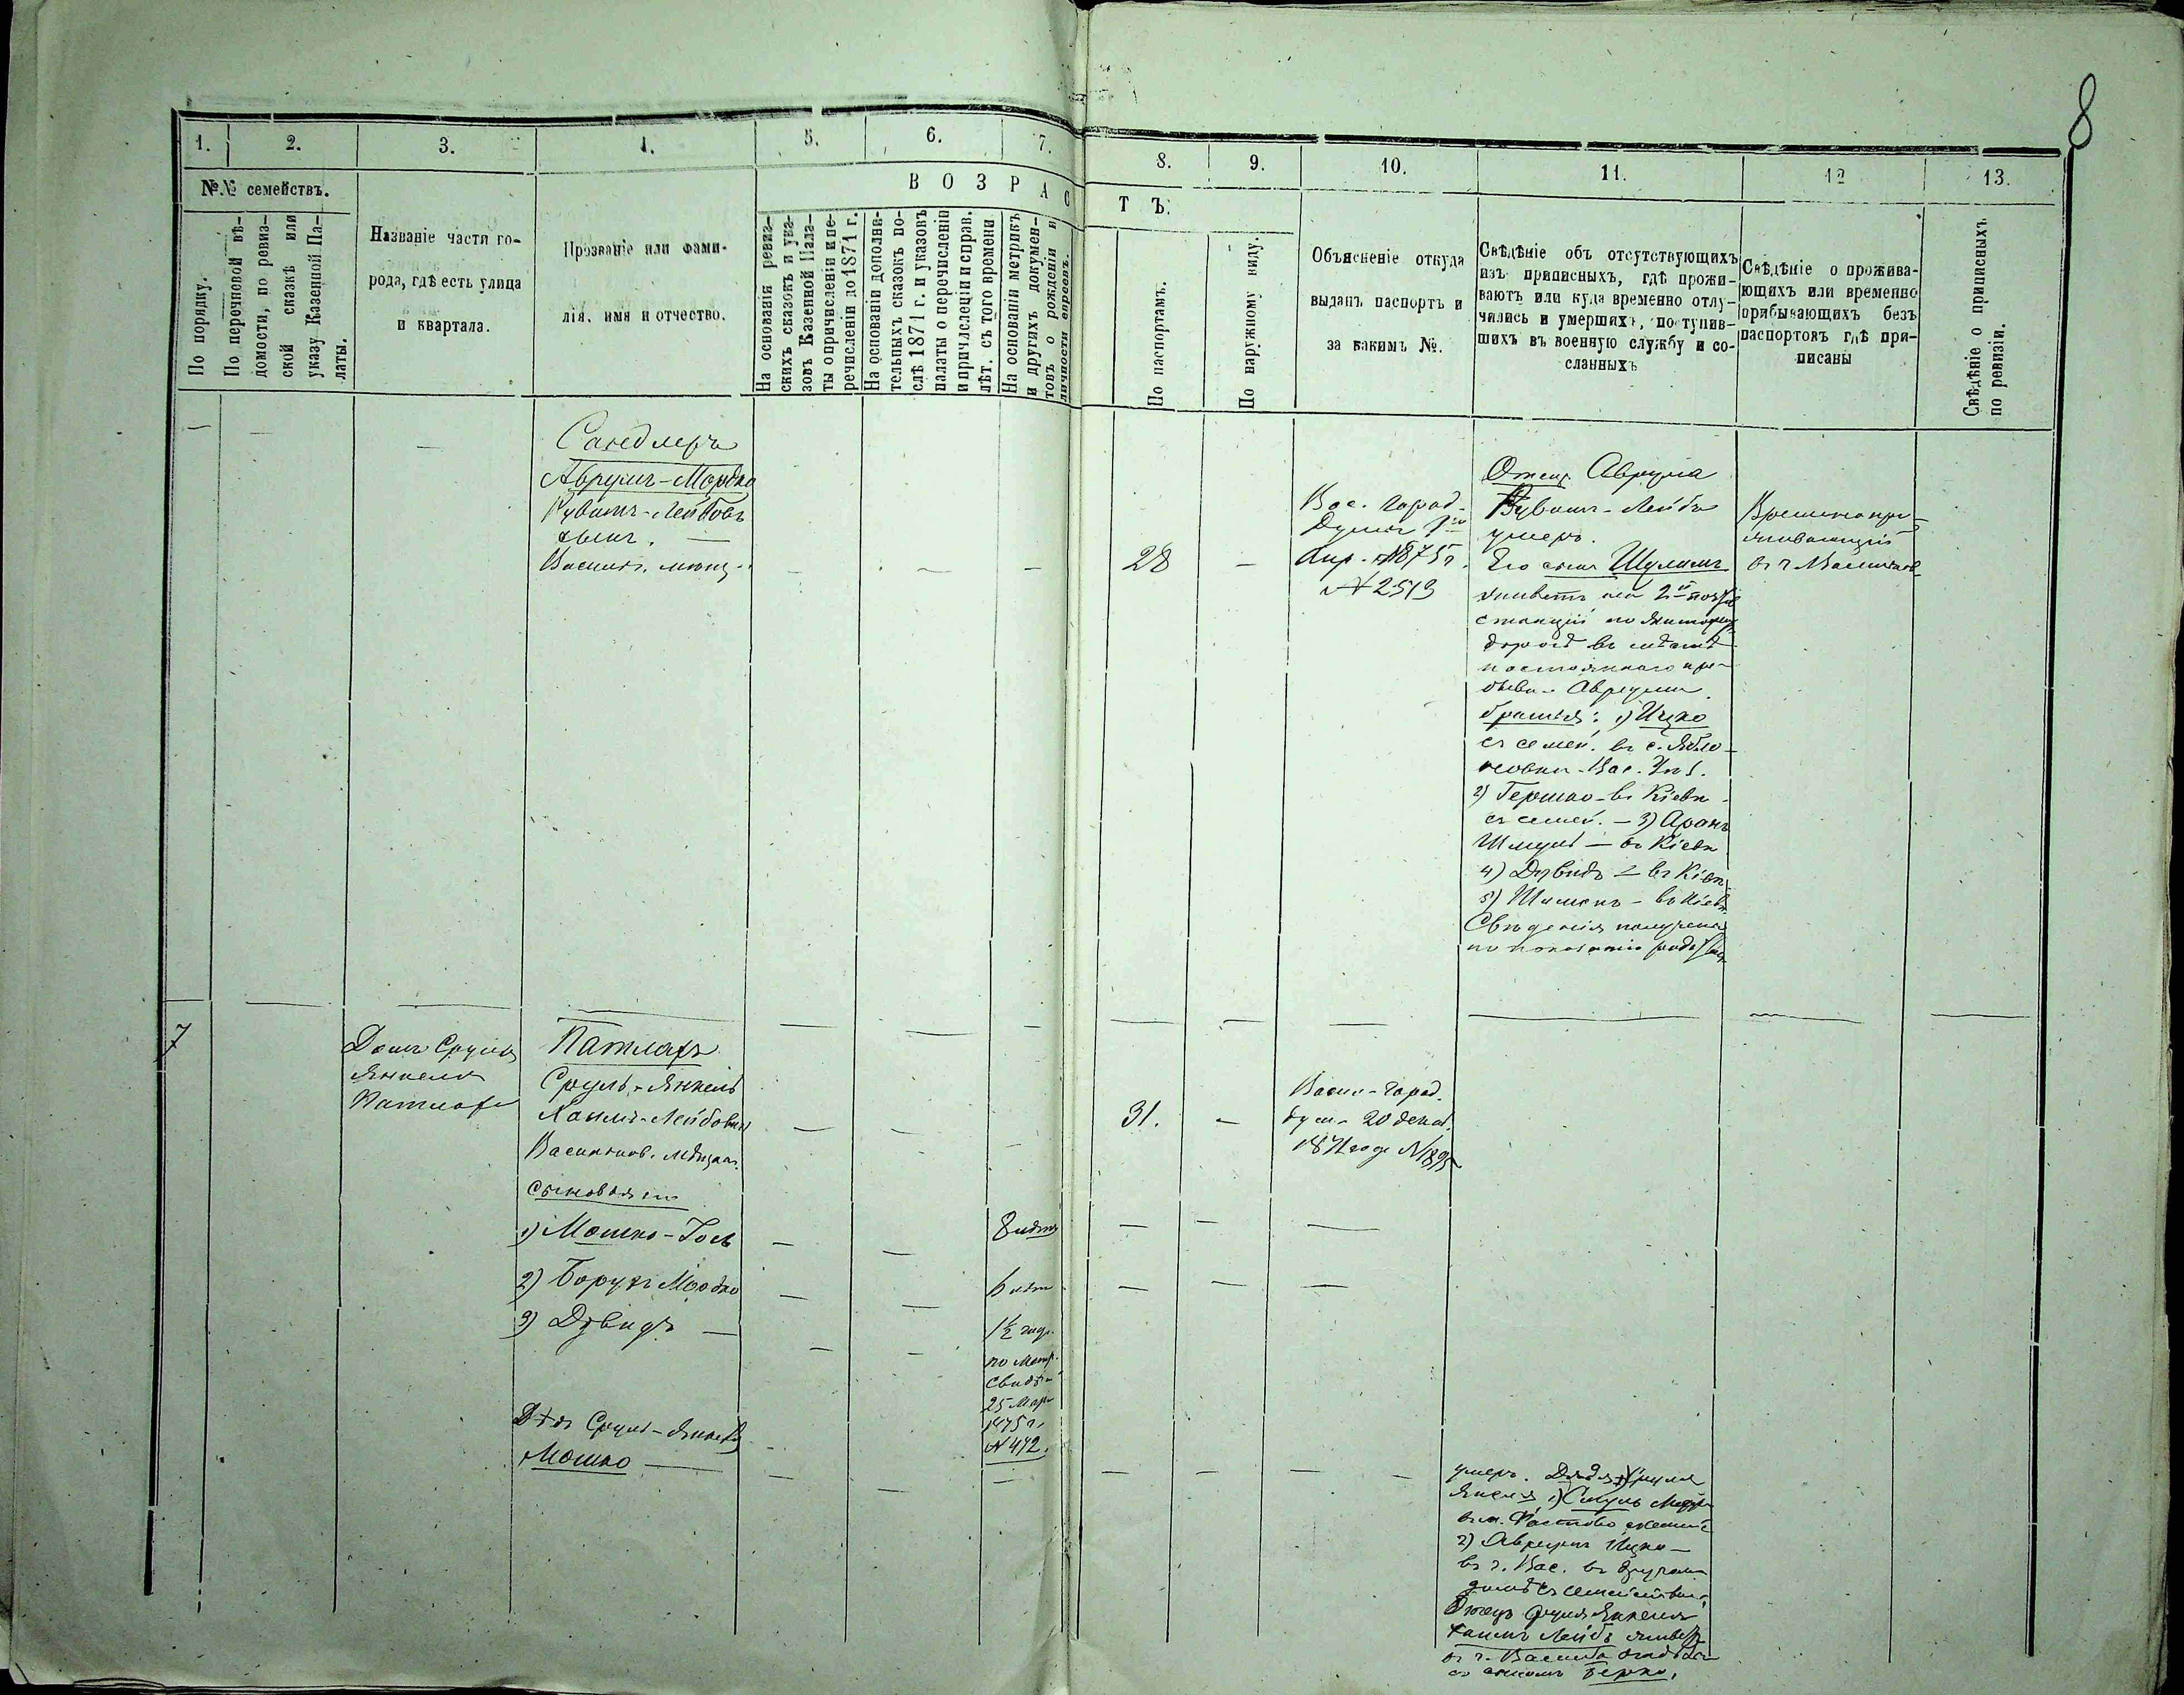 8
1. 2. 3. 4. 5. 6. 7. 8. 9. 10. 11. 12 13.
№№ семействъ.
В О З Р А С Т Ъ.
По порядку.
По перечневой вѣ-
домости, по ревиз-
ской сказкѣ или
указу Казенной Па-
латы.
Названіе части го-
рода, гдѣ есть улица
и квартала.
Прозваніе или фами-
лія, имя и отчество.
На основаніи ревиз-
скихъ сказокъ и ука-
зовъ Казенной Пала-
ты о причисленіи и пе-
речисленіи до 1871 г.
На основаніи дополни-
тельныхъ сказокъ по-
слѣ 1871 г. и указовъ
палаты о перечисленіи
и причисленіи и справ.
лѣт. съ того времени
На основаніи метрикъ
и другихъ докумен-
товъ о рожденіи и
личности евреевъ.
По паспортамъ.
По наружному виду.
Объясненіе откуда
выданъ паспортъ и
за какимъ №.
Свѣдѣніе объ отсутствующихъ
изъ приписныхъ, гдѣ прожи-
ваютъ или куда временно отлу-
чились и умершихъ, поступив-
шихъ въ военную службу и со-
сланныхъ
Свѣдѣніе о прожива-
ющихъ или временно
прибывающихъ безъ
паспортовъ гдѣ при-
писаны
Свѣдѣніе о приписныхъ
по ревизіи.
Сандлеръ
Аврумъ-Мордко
Рувинъ-Лейбовъ
сынъ.
Васильк. мѣщ.
28
Вас. Город.
Думы
Апр. 1875 г.
№ 2519
Отецъ Аврума
Рувинъ-Лейба
умеръ.
Его сынъ Шулимъ
живетъ на 2й почт
станціи по Житомир
дорогѣ въ мѣстѣ
постояннаго пре-
быв. Аврума
братья: 1) Ицко
съ семей. въ с. Ябло-
новки Вас. Уѣз.
2) Гершко въ Кіевѣ
съ семей. — 3) Аронъ
Шмуль — въ Кіевѣ
4) Дувидъ — въ Кіевѣ
5) Шименъ — въ Кіевѣ
Свѣденія получены
по показанію
Временно про-
живающій
въ г. Васильков
7
Домъ Сруля
Янкеля
Патлаха
Патлахъ
Сруль-Янкель
Хаимъ-Лейбовичъ
Васильков. мѣщан.
сыновья его
1) Мошко-Іось
2) Борухъ Мордко
3) Дувидъ
Дядя Сруля-Янкеля
Мошко
8 лѣтъ
6 лѣтъ
1½ года
по Метр.
Свидѣт.
25 Мар
1875 г.
№ 472.
31.
Васил. Город.
дум. 20 декаб.
187 года №
умеръ. Дядя Сруля
Янкеля 1) Сруль
въ м. Фастово
2) Аврумъ Ицко —
въ г. Вас. въ другомъ
домѣ съ семействомъ
Отецъ Сруля Янкеля
Хаимъ Лейбъ живетъ
въ г. Василько
съ сыномъ Берко.